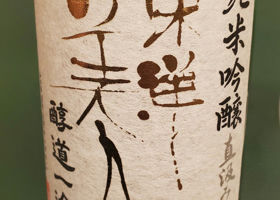 純米吟醸 直汲み
東洋
の美人
醇道一途